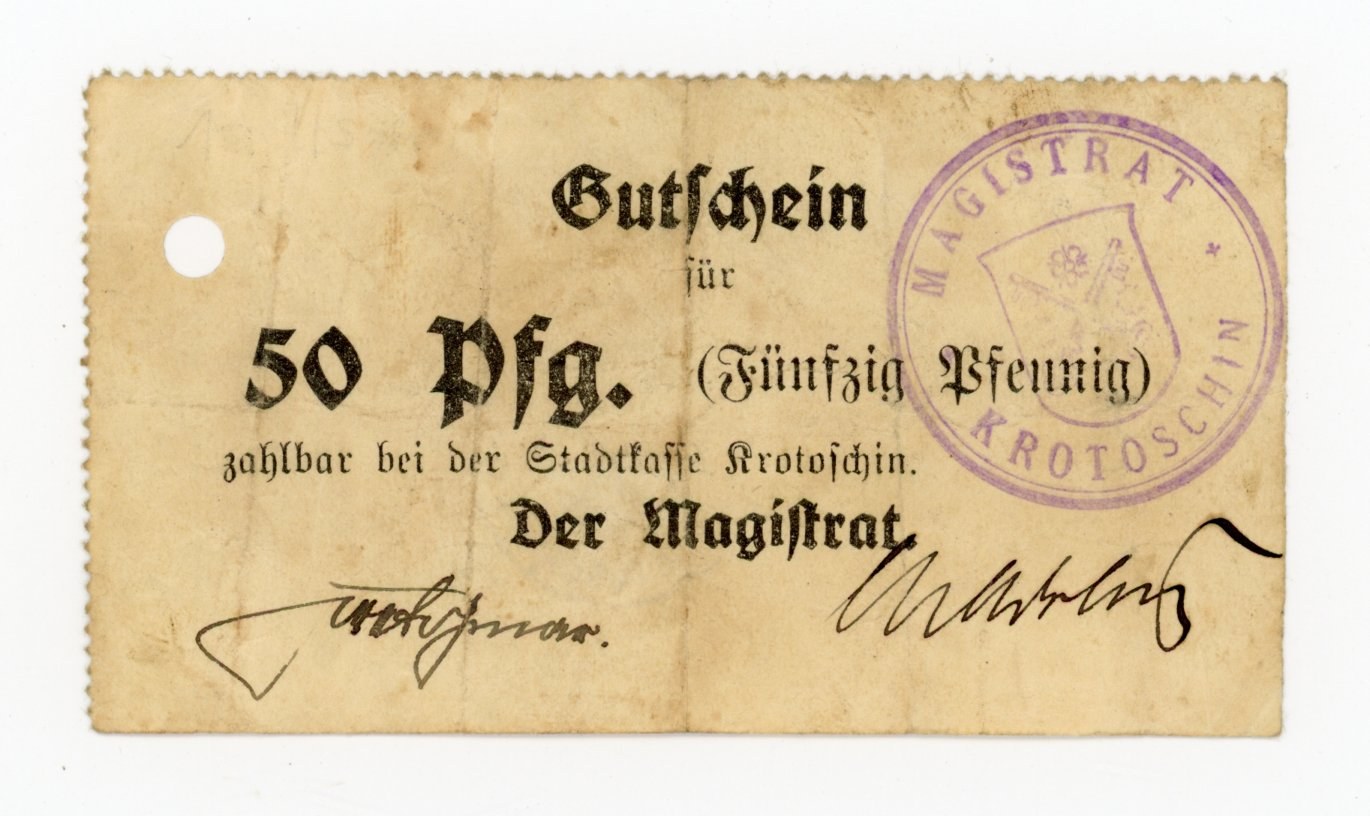 Gutschein
für
50 Pfg. (Fünfzig Pfennig)
zahlbar bei der Stadtkasse Krotoschin.
Der Magistrat.
MAGISTRAT *
KROTOSCHIN